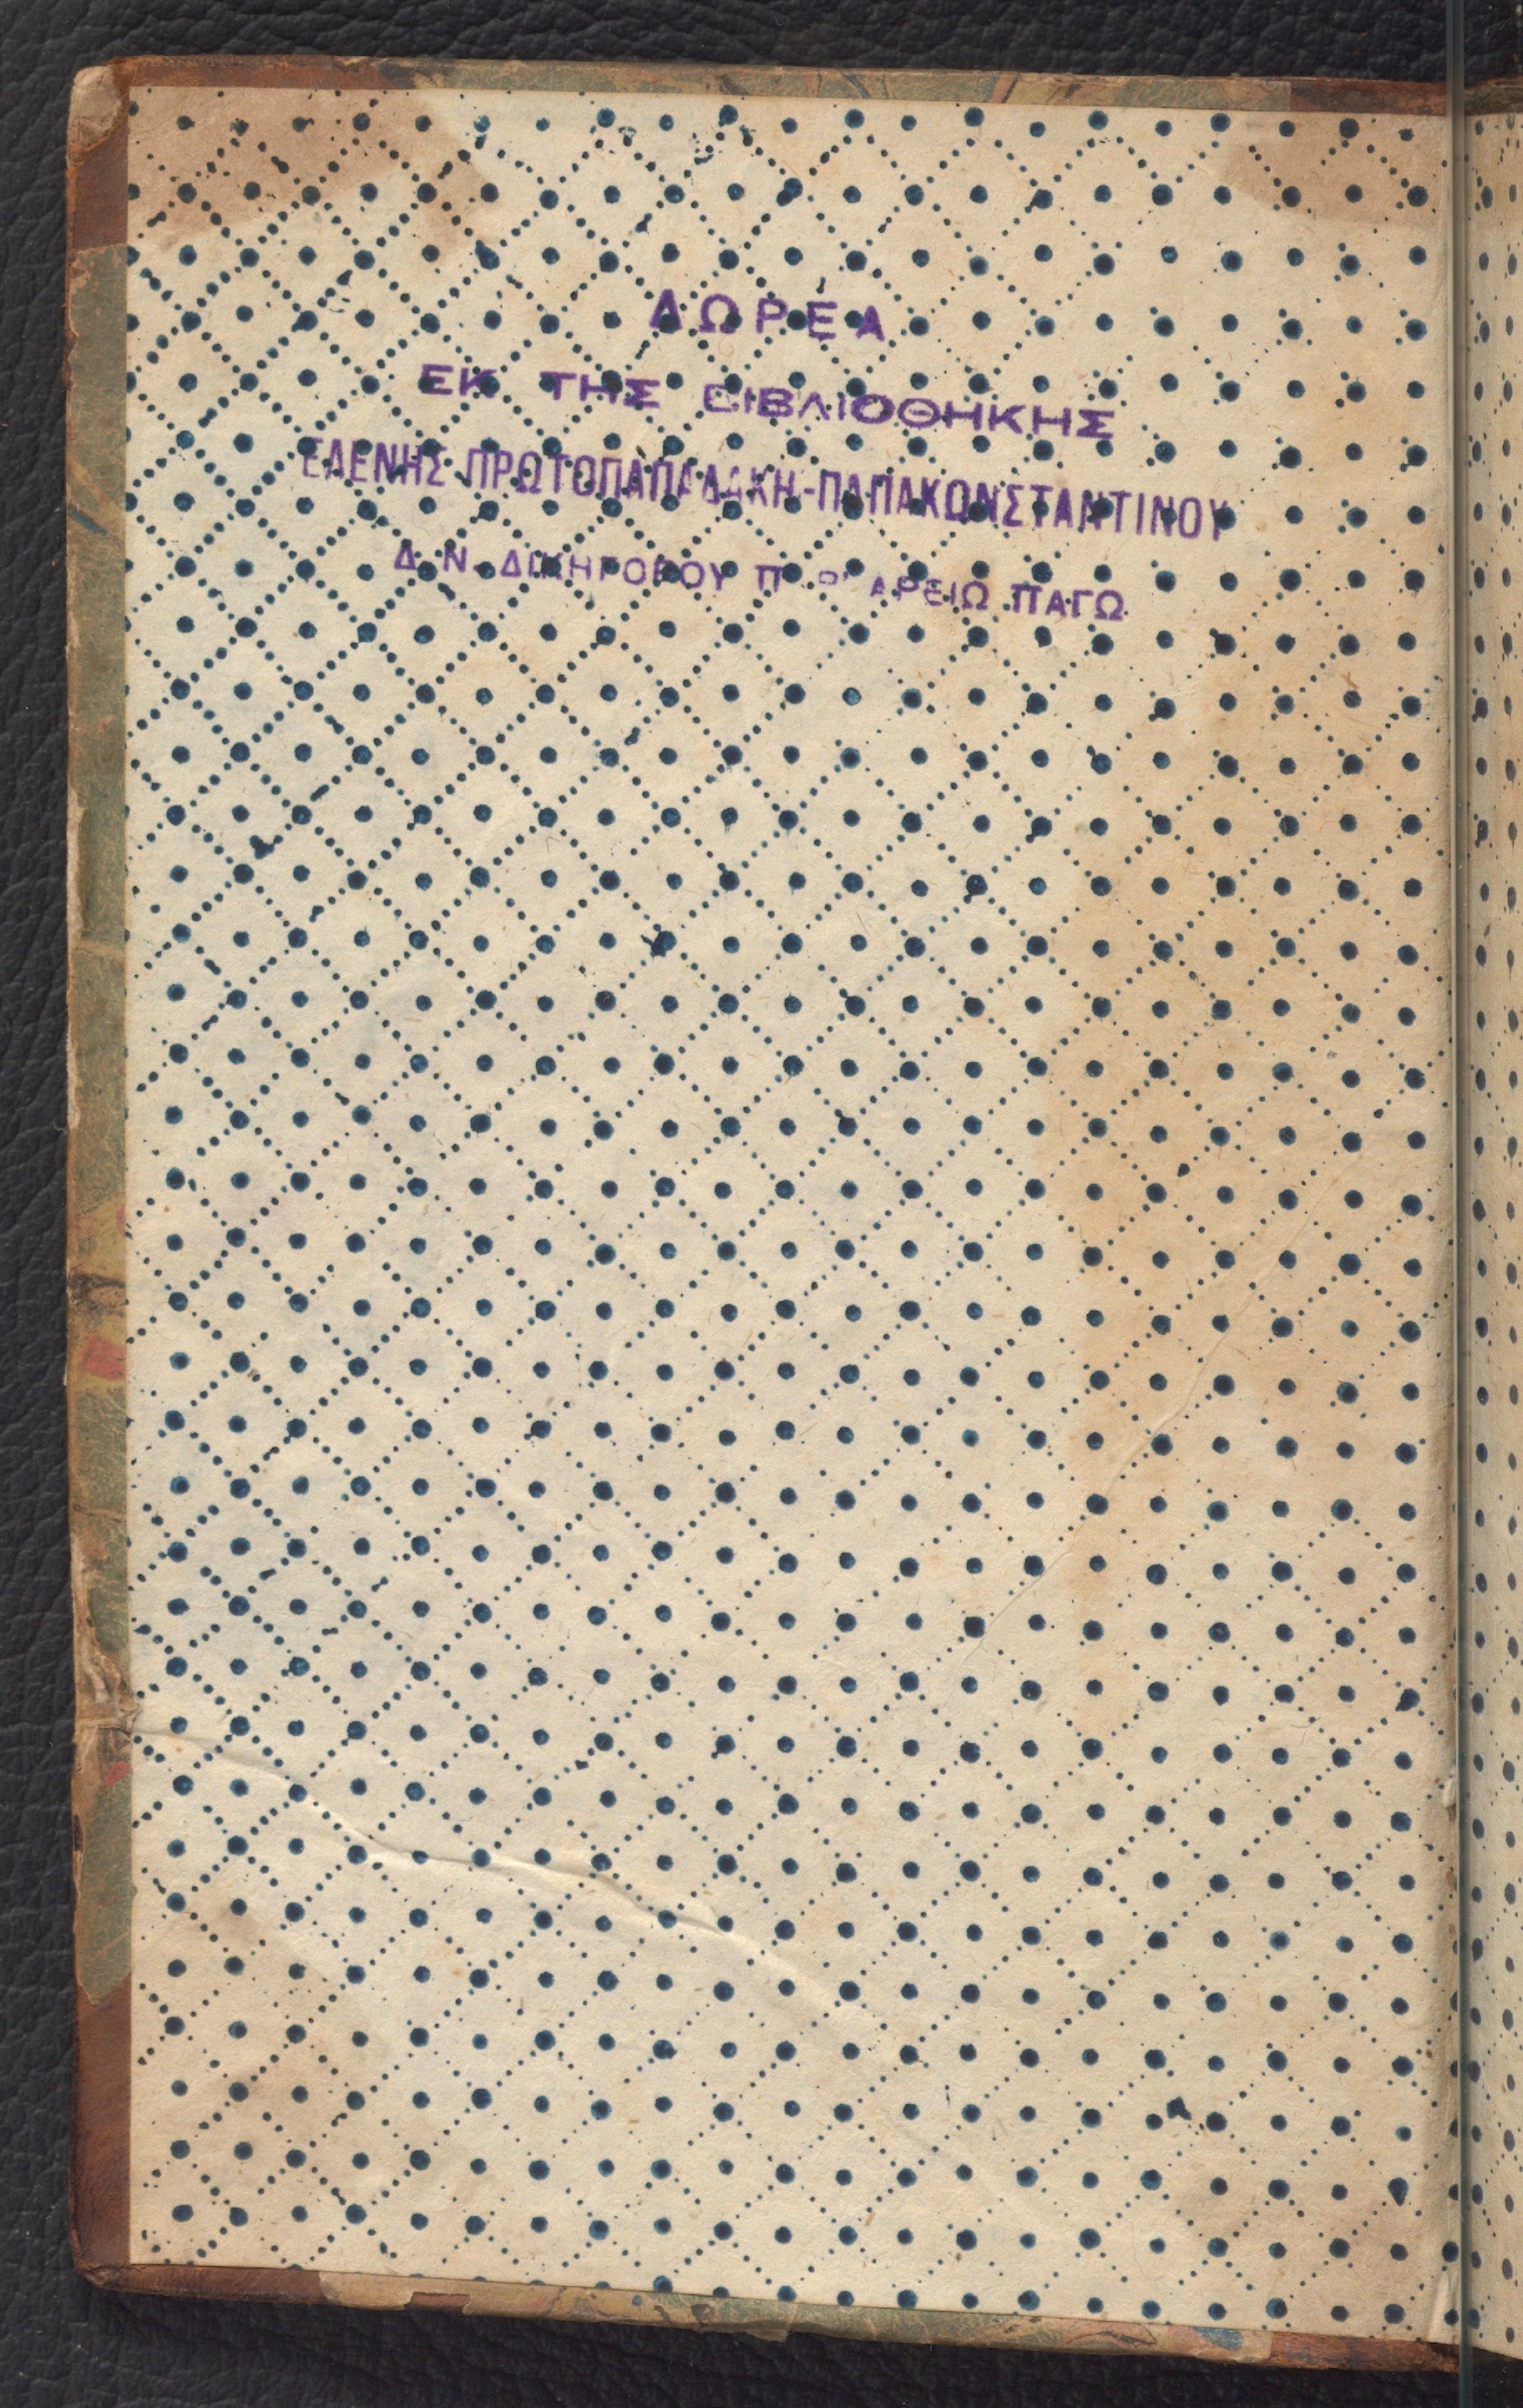 ΔΩΡΕΑ
ΕΚ ΤΗΣ ΒΙΒΛΙΟΘΗΚΗΣ
ΕΛΕΝΗΣ ΠΡΩΤΟΠΑΠΑΔΑΚΗ-ΠΑΠΑΚΩΝΣΤΑΝΤΙΝΟΥ
Δ. Ν. ΔΙΚΗΓΟΡΟΥ ΠΑΡ' ΑΡΕΙΩ ΠΑΓΩ